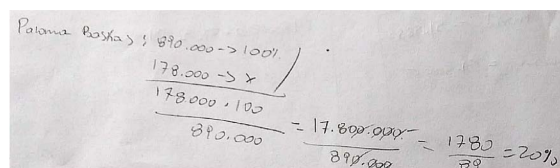 Paloma Boskas: 890.000 -> 100%
178.000 -> x
178.000 · 100 / 890.000 = 17.800.000 / 890.000 = 1780 / 89 = 20%